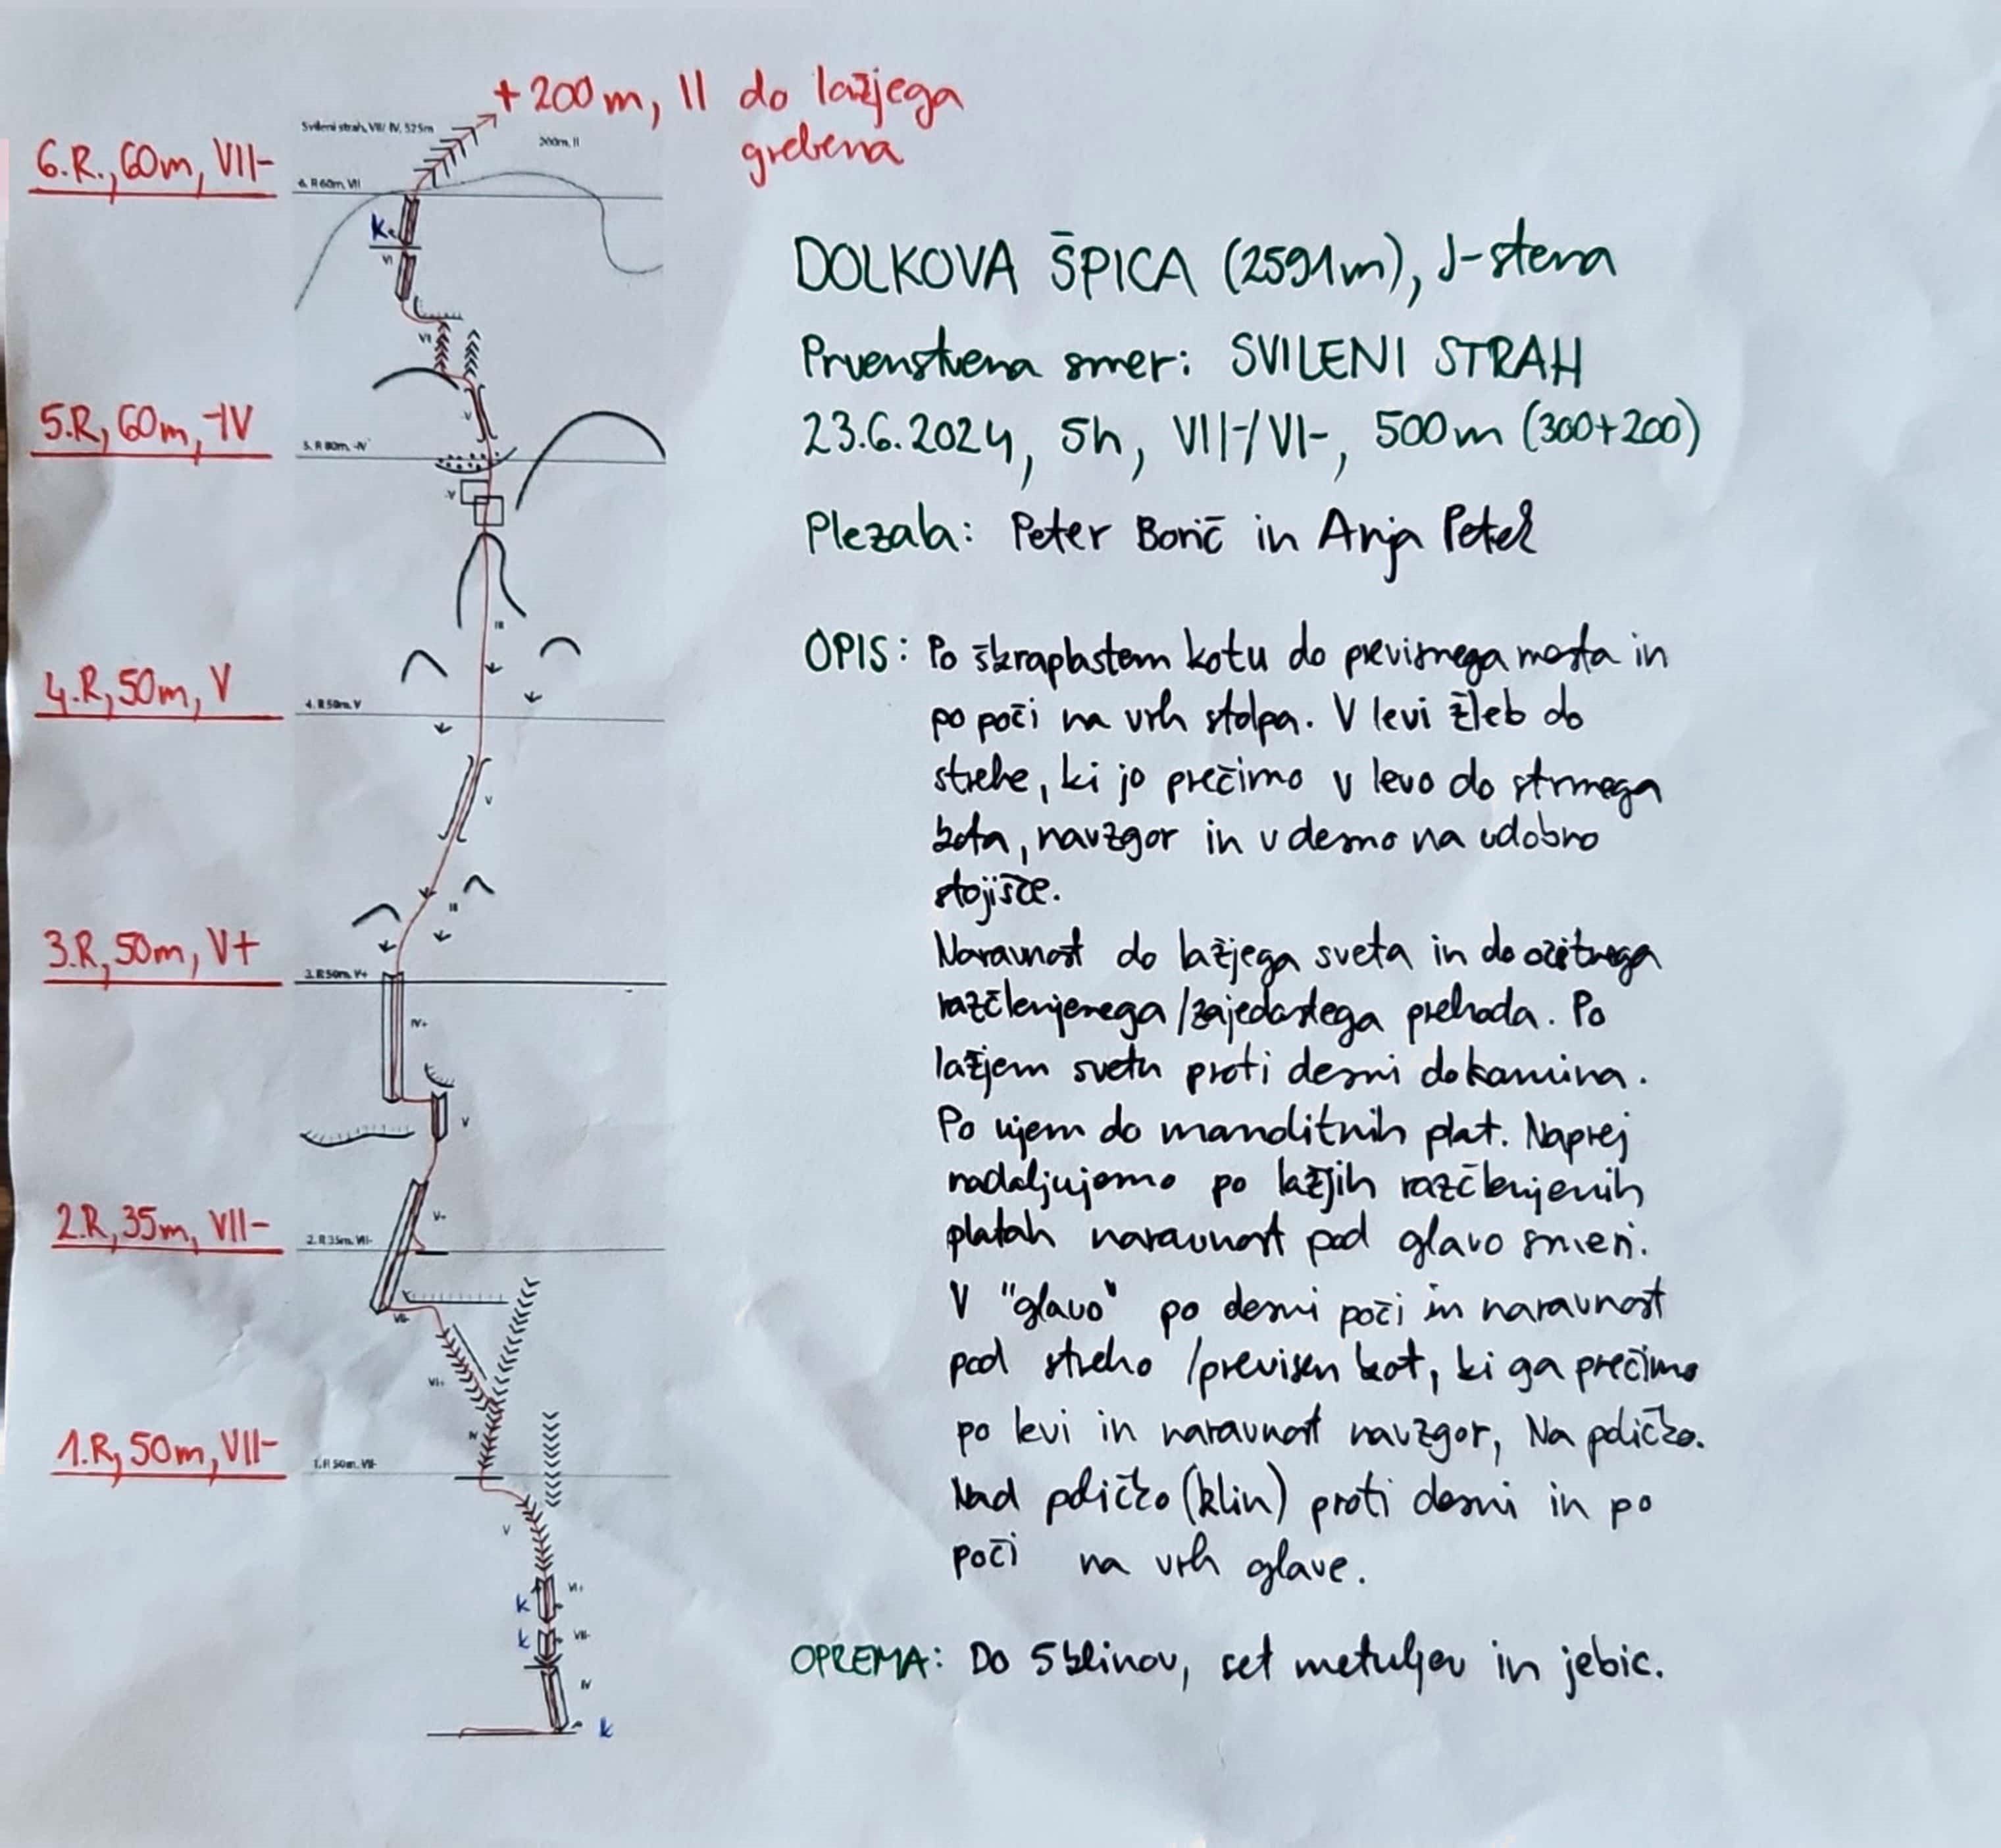 + 200m, II do lažjega
grebena
Svileni strah, VII/ IV, 525m
200m, II
6.R., 60m, VII-
6. R 60m, VII
K
VI
VI
DOLKOVA ŠPICA (2591m), J-stena
Prvenstvena smer: SVILENI STRAH
23.6.2024, 5h, VII-/VI-, 500m (300+200)
Plezala: Peter Borič in Anja Petek
V
5.R, 60m, -IV
5. R 60m, -IV
V
III
4.R, 50m, V
4. R 50m, V
V
III
3.R, 50m, V+
3. R 50m, V+
IV+
V
V-
2.R, 35m, VII-
2. R 35m, VII-
VII-
VI+
IV
1.R, 50m, VII-
1. R 50m, VII-
V
K
VI+
K
VII-
IV
k
OPIS: Po škraplastem kotu do previsnega mesta in
po poči na vrh stolpa. V levi žleb do
strehe, ki jo prečimo v levo do strmega
kota, navzgor in v desno na udobno
stojišče.
Naravnost do lažjega sveta in do očitnega
razčlenjenega/zajedastega prehoda. Po
lažjem svetu proti desni do kamina.
Po njem do  plat. Naprej
nadaljujemo po lažjih razčlenjenih
platah naravnost pod glavo smeri.
V "glavo" po desni poči in naravnost
pod streho /previsen kot, ki ga prečimo
po levi in naravnost navzgor, Na poličko.
Nad poličko (klin) proti desni in po
poči na vrh glave.
OPREMA: Do 5 klinov, set metuljev in jebic.